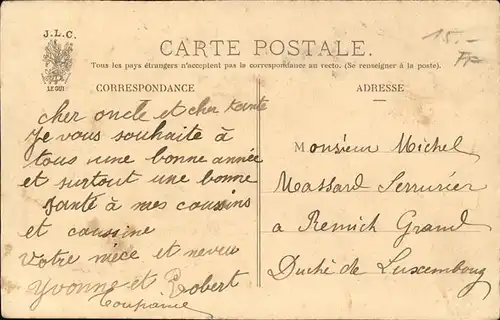 J.L.C.
LE GUI
15.-
FF
CARTE POSTALE.
Tous les pays étrangers n'acceptent pas la correspondance au recto. (Se renseigner à la poste).
CORRESPONDANCE
cher oncle et cher tante
Je vous souhaite à
tous une bonne année
et surtout une bonne
santé à mes coussins
et coussine
votre nièce et neveu
Yvonne et Robert
ADRESSE
Monsieur Michel
Massard Serrurier
a Remich Grand
Duché de Luxembourg